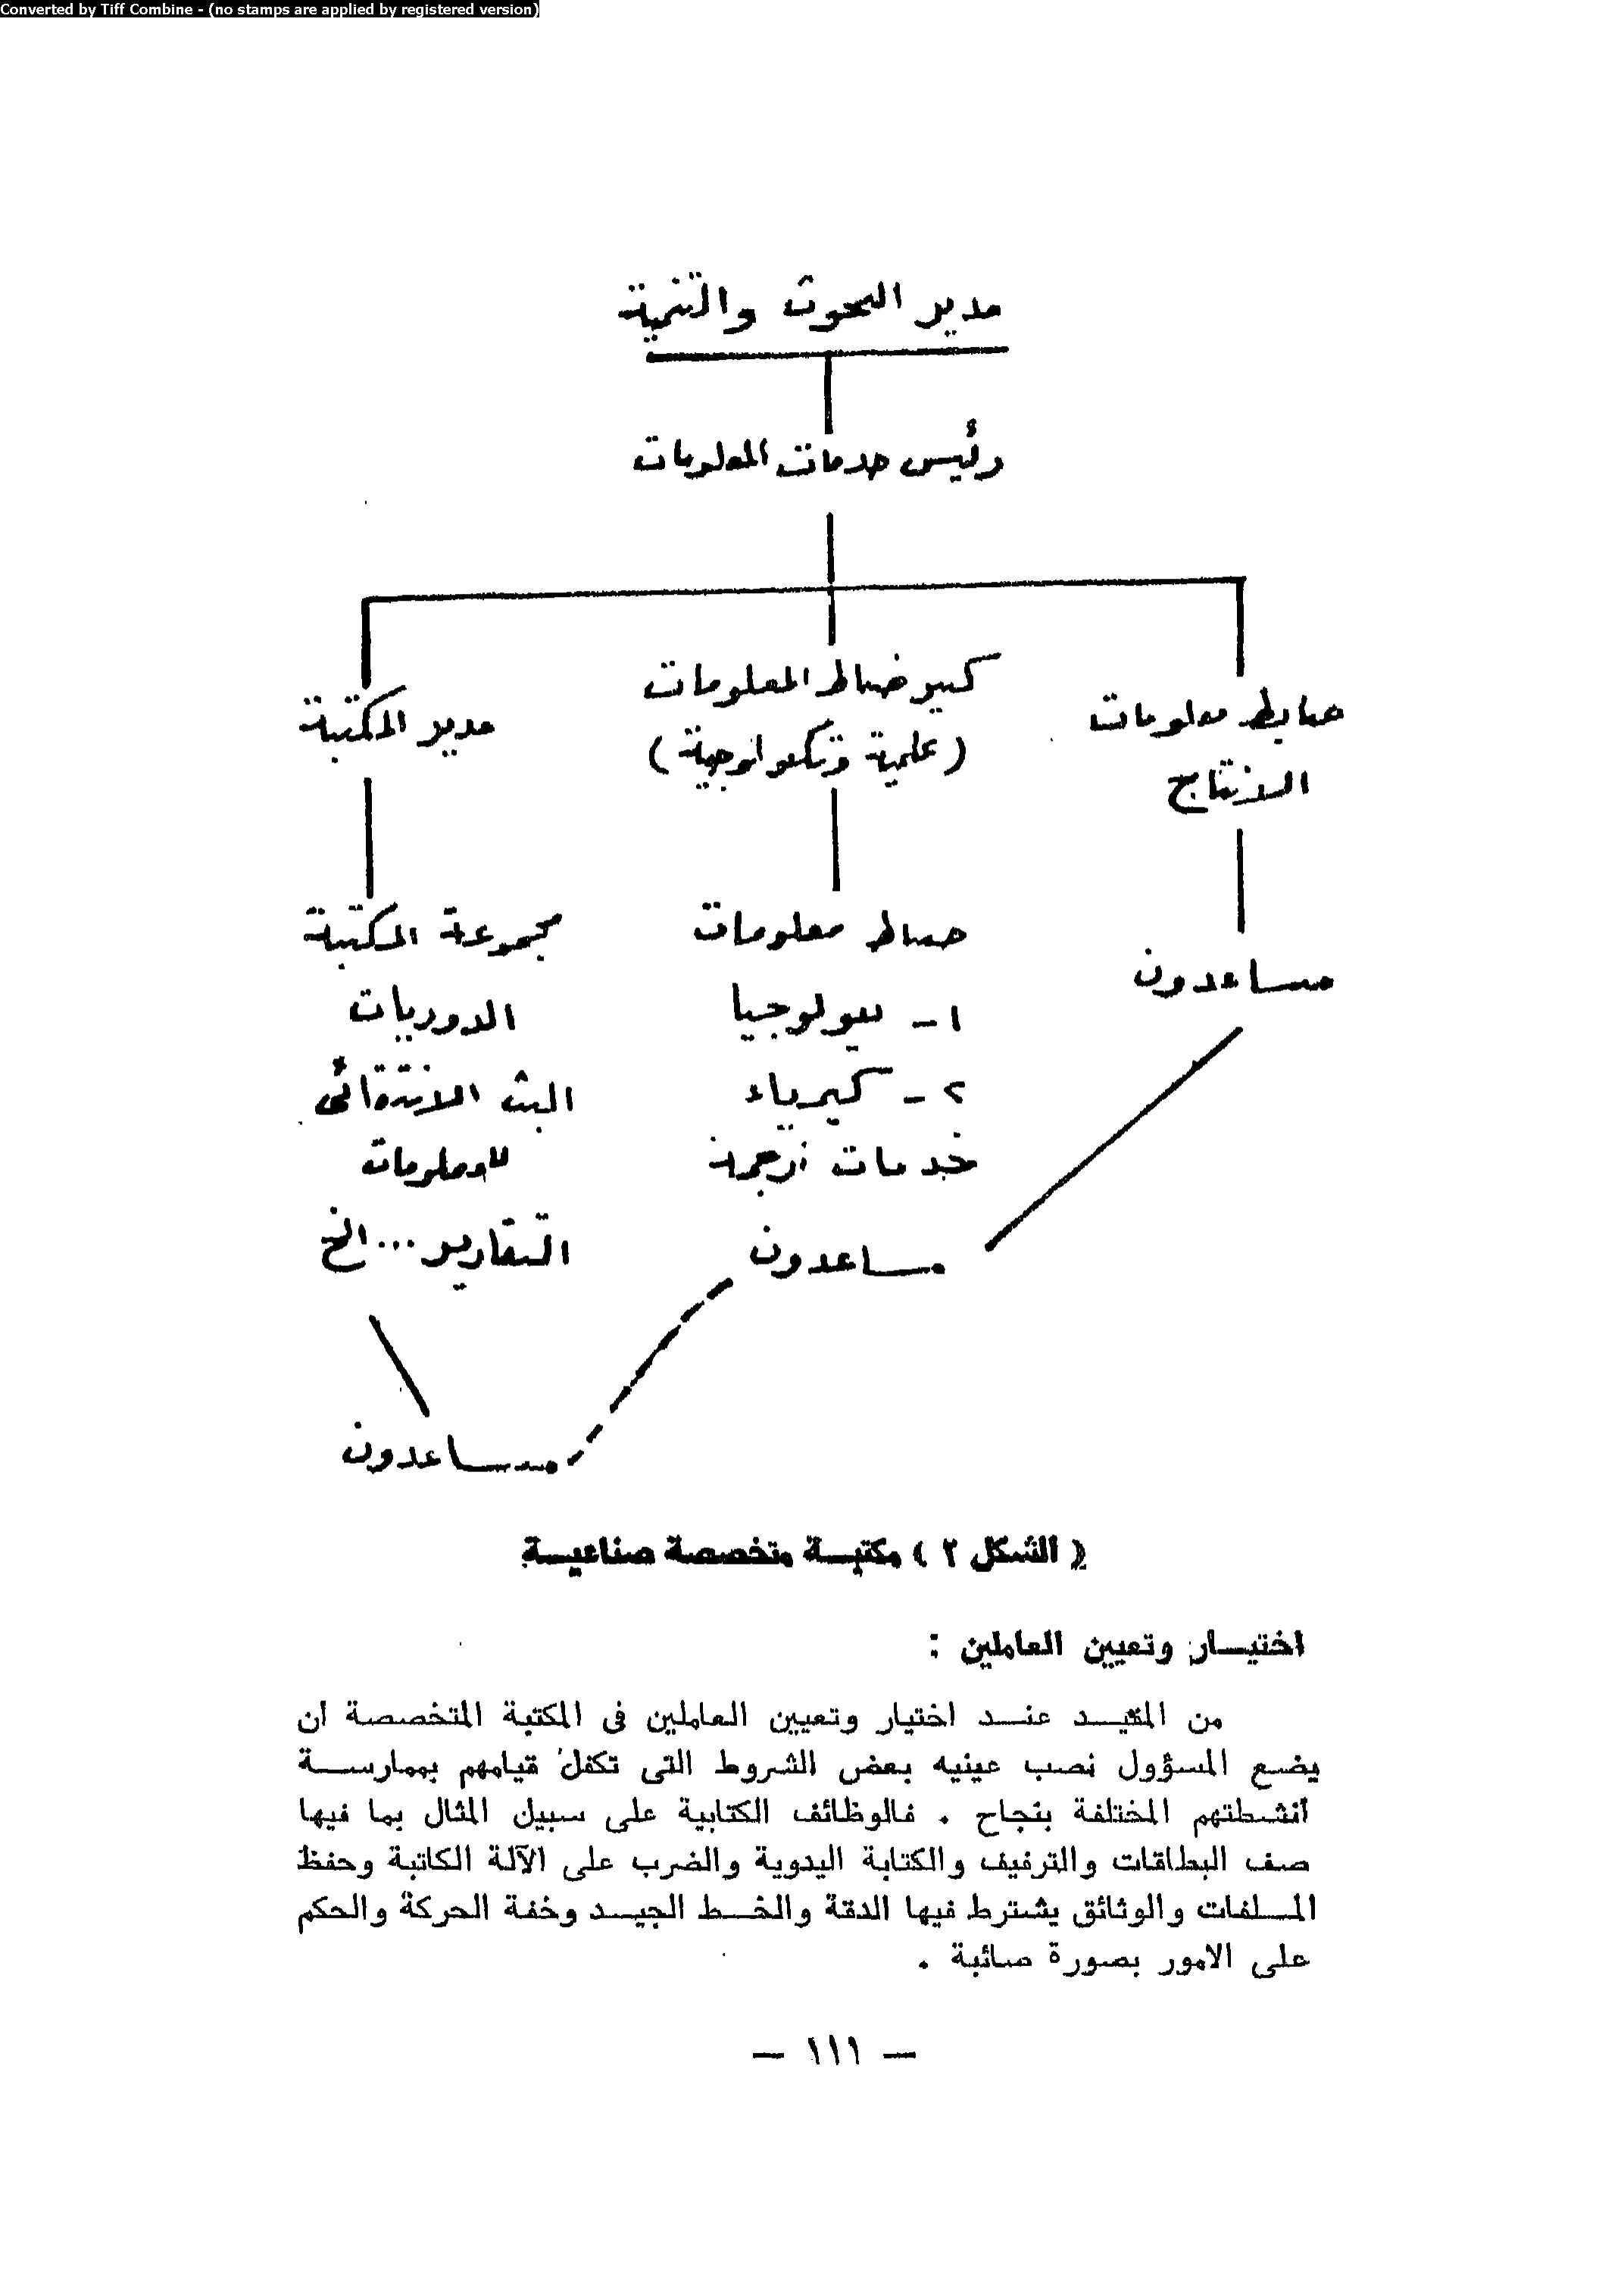 Converted by Tiff Combine - (no stamps are applied by registered version)
مدير البحوث والتنمية
رئيس خدمات المعلومات
ضابط معلومات
الانتاج
مساعدون
كبير ضباط المعلومات
(علمية وتكنولوجية)
ضباط معلومات
١ - بيولوجيا
٢ - كيمياء
خدمات ترجمة
مساعدون
مدير المكتبة
مجموعة المكتبة
الدوريات
البث الانتقائى
للمعلومات
التقارير ... الخ
مساعدون
( الشكل ٢ ) مكتبة متخصصة صناعية
اختيار وتعيين العاملين :
من المفيد عند اختيار وتعيين العاملين فى المكتبة المتخصصة أن
يضع المسؤول نصب عينيه بعض الشروط التى تكفل قيامهم بممارسة
أنشطتهم المختلفة بنجاح . فالوظائف الكتابية على سبيل المثال بما فيها
صف البطاقات والترفيف والكتابة اليدوية والضرب على الآلة الكاتبة وحفظ
الملفات والوثائق يشترط فيها الدقة والخط الجيد وخفة الحركة والحكم
على الامور بصورة صائبة .
— ١١١ —